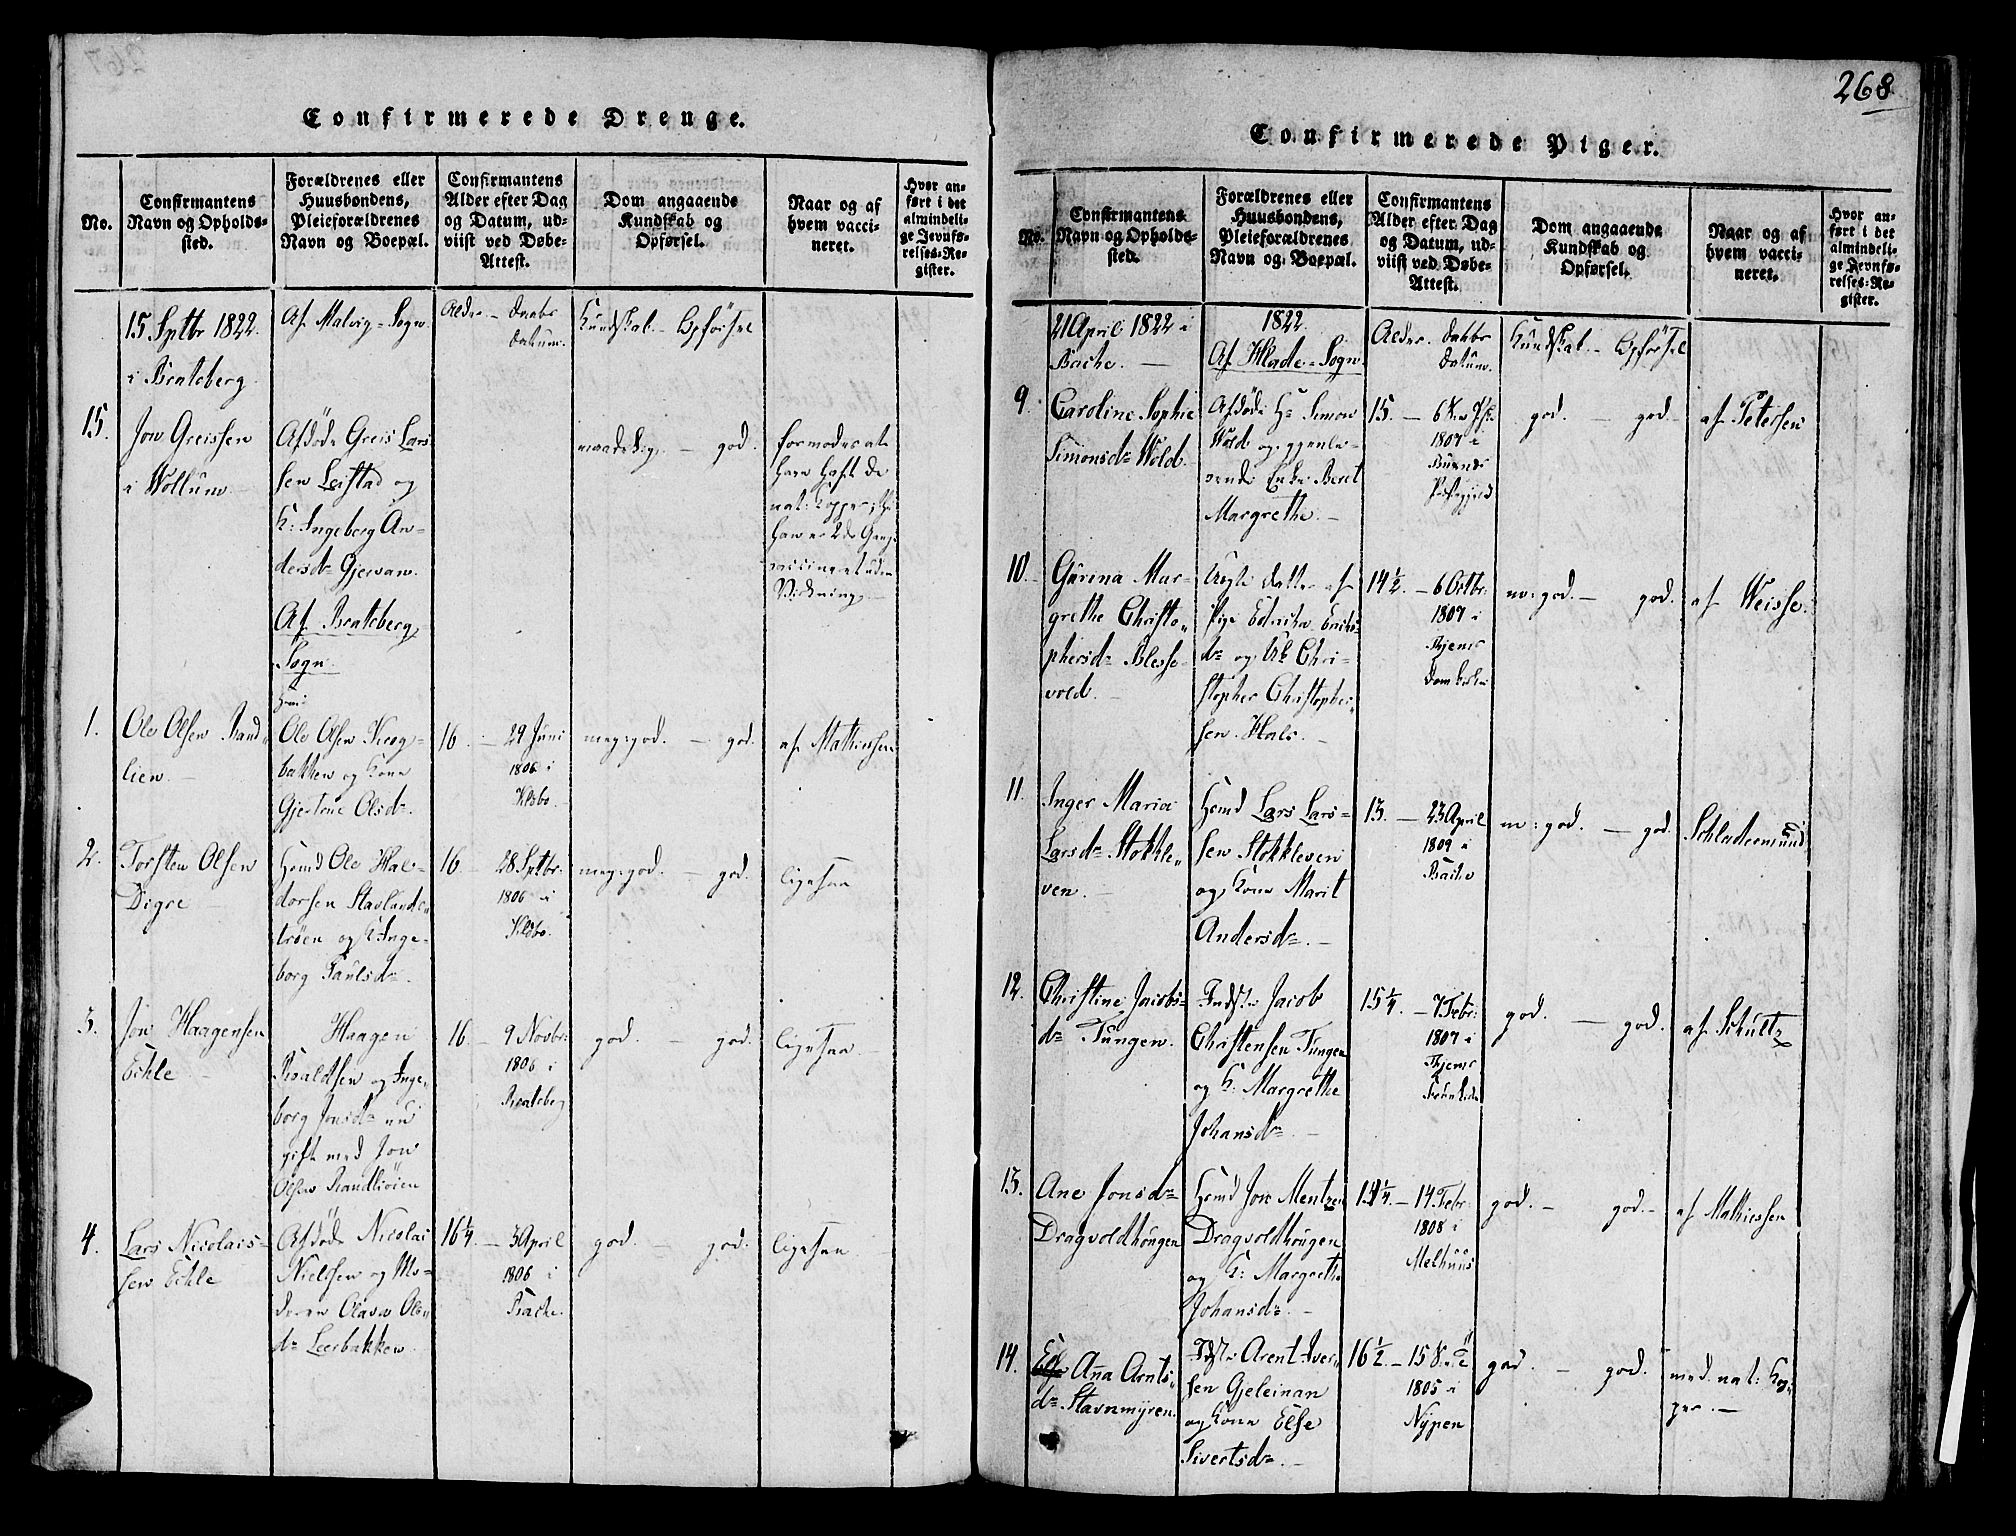 268
Confirmerede Drenge.
No.
Confirmantens
Navn og Opholds-
sted.
Forældrenes eller
Huusbondens,
Pleieforældrenes
Navn og Boepæl.
Confirmantens
Alder efter Dag
og Datum, ud-
viist ved Døbe-
Attest.
Dom angaaende
Kundskab og
Opførsel.
Naar og af
hvem vacci-
neret.
Hvor an-
ført i det
almindeli-
ge Jevnfø-
relses-Re-
gister.
15 Sptbr 1822.
i Bratsberg.
Af Malvig-Sogn
Alder. - Daabs
datum.
Kundskab - Opförsel
15.
Jon Greissen
i Wollum
Afdöde Greis Lars-
sen Leistad og
K: Ingeberg An-
dersdr Gjervan.
maadelig. - god.
formodes at
have haft de
nat: Kopper,
han er 2de Gange
vaccineret uden
Virkning.
Af Bratsberg
Sogn.
1.
Ole Olsen Rand-
lien.
Ole Olsen
bakken og Kone
Gjertrue Olsdr.
16. - 29 Juni
1806 i
Klæbo.
meg: god. - god.
af Mathiessen
2.
Torsten Olsen
Digre
Hmd Ole Hal-
dorsen Stavlands-
tröen og K: Inge-
borg Paulsdr.
16 - 28 Sptbr:
1806 i
Klæbo.
meg: god. - god.
ligesaa
3.
Jon Haagensen
Echle
Haagen
og Inge-
borg Jonsdr nu
gift med Jon
Olsen Randliöien
16 - 9 Novbr:
1806 i
Bratsberg
god. - god.
ligesaa
4.
Lars Nicolais-
sen Echle
Afdöde Nicolai
Nielssen og Mo-
deren Olava Ols-
dr Leerbakken.
16 1/4. - 3 April
1806 i
Bache.
god. - god.
ligesaa.
Confirmerede Piger.
No.
Confirmantens
Navn og Opholds-
sted.
Forældrenes eller
Huusbondens,
Pleieforældrenes
Navn og Boepæl.
Confirmantens
Alder efter Dag
og Datum, ud-
viist ved Døbe-
Attest.
Dom angaaende
Kundskab og
Opførsel.
Naar og af
hvem vacci-
neret.
Hvor an-
ført i det
almindeli-
ge Jevnfø-
relses-Re-
gister.
21 April 1822 i
Bache.
1822.
Af Hlade-Sogn
Alder. Daabs
datum.
Kundskab. - Opförsel
9.
Caroline Sophie
Simonsdr Wold
Afdöde Hr Simon
Wold og gjenle-
vende Enke Beret
Margrethe.
15. -
1807 i
god. - god.
af Petersen
10.
Gurina Mar-
grethe Christo-
phersdr Blesse-
vold.
Uegte datter af
Pige
dr og Uk Chri-
stopher Christopher-
sen Hals.
14 1/2. - 6 Octbr:
1807 i
Thjems
Domkirke
m: god. - god.
af Weisse
11.
Inger Maria
Larsdr Stokkle-
ven.
Hmd Lars Lars-
sen Stokkleven
og Kone Marit
Andersdr.
13. - 23 April
1809 i
Bache
m: god. - god.
Schladermund
12.
Christine Jacobs-
dr Tungen.
Indstr Jacob
Christensen Tungen
og K: Margrethe
Johansdr.
15 1/4. - 7 Febr:
1807 i
Thjems
god. - god.
af Schultz
13.
Ane Jonsdr
Dragvoldhougen
Hmd Jon Mentzen
Dragvoldhougen
og K: Margrethe
Johansdr.
14 1/4. - 14 Febr:
1808 i
Melhuus
god. - god.
af Mathiessen
14.
Else Ana Arnts-
dr Stavnmyren.
Idstr Arent Iver-
sen Gjeleinan
og Kone Else
Sivertsdr.
16 1/2. -
1805 i
Nypen
god. - god.
med nat: Kop-
per.